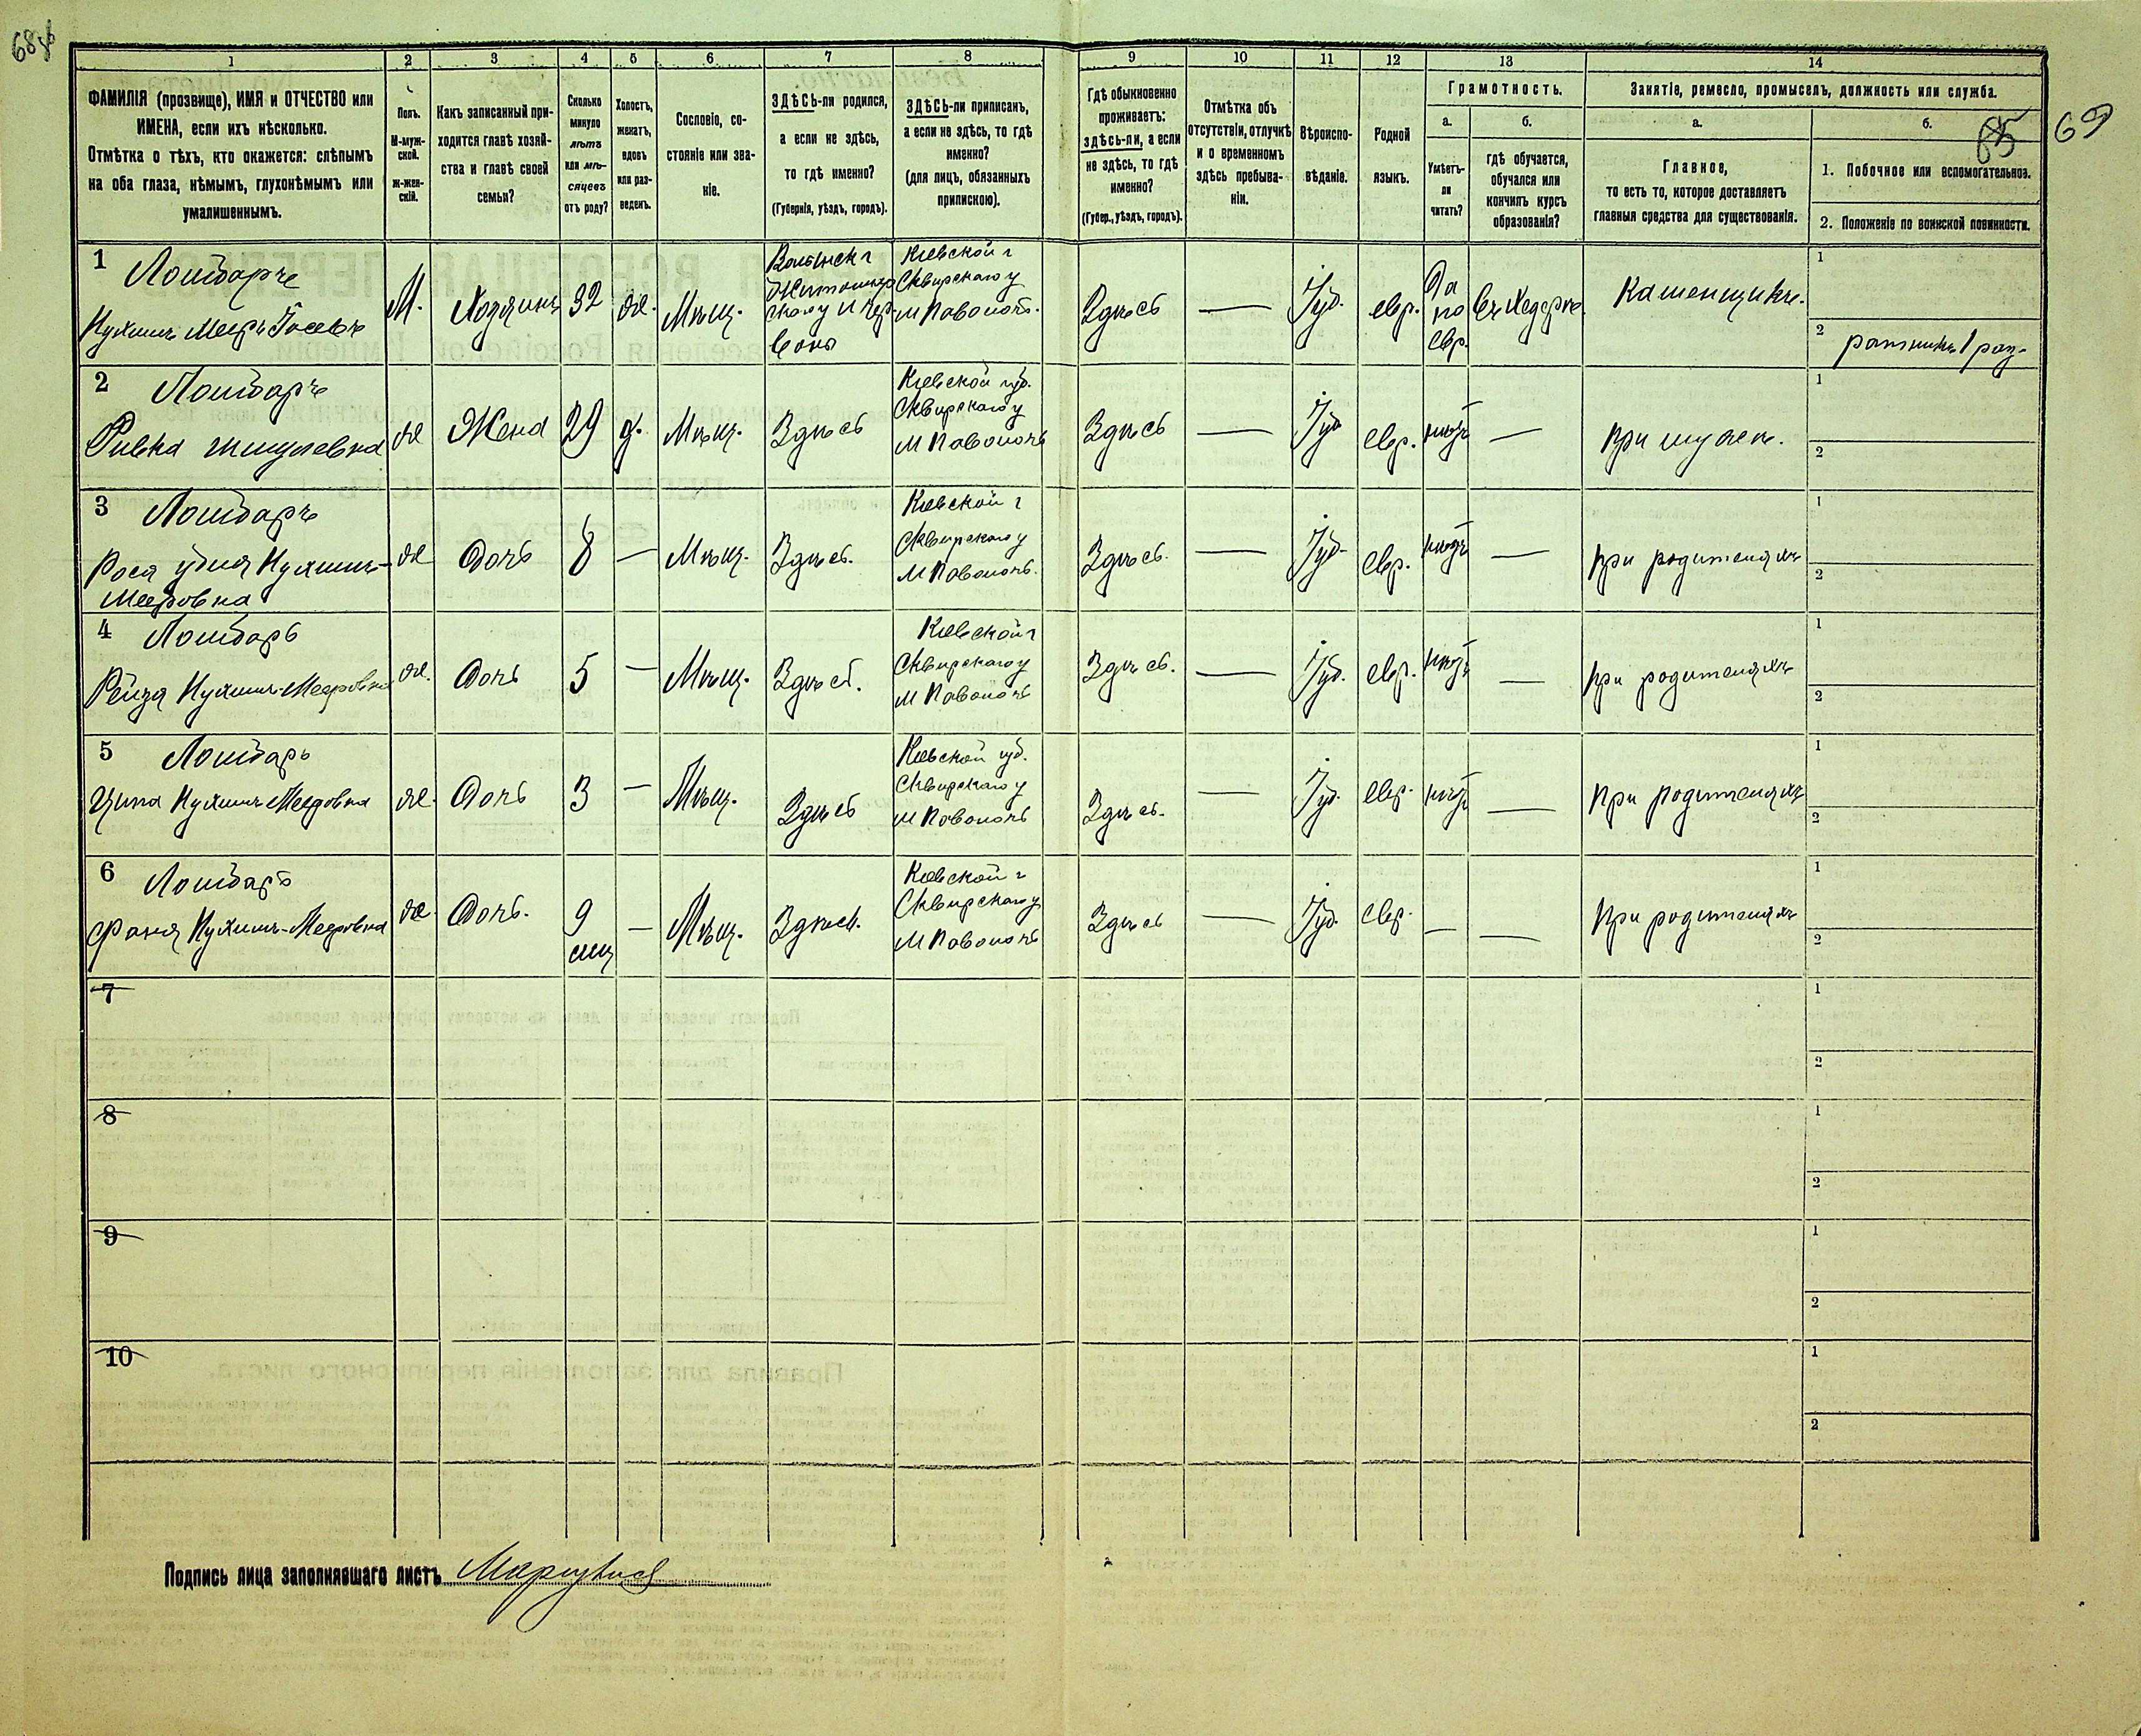 68об
69
65
1 2 3 4 5 6 7 8 9 10 11 12 13 14
ФАМИЛІЯ (прозвище), ИМЯ и ОТЧЕСТВО или ИМЕНА, если ихъ нѣсколько.
Отмѣтка о тѣхъ, кто окажется: слѣпымъ на оба глаза, нѣмымъ, глухонѣмымъ или умалишеннымъ.
Полъ.
М-мужской.
Ж-женскій.
Какъ записанный приходится главѣ хозяйства и главѣ своей семьи?
Сколько минуло лѣтъ или мѣсяцевъ отъ роду?
Холостъ, женатъ, вдовъ или разведенъ.
Сословіе, состояніе или званіе.
ЗДѢСЬ-ли родился, а если не здѣсь, то гдѣ именно?
(Губернія, уѣздъ, городъ).
ЗДѢСЬ-ли приписанъ, а если не здѣсь, то гдѣ именно?
(для лицъ, обязанныхъ припискою).
Гдѣ обыкновенно проживаетъ: здѣсь-ли, а если не здѣсь, то гдѣ именно?
(Губер., уѣздъ, городъ).
Отмѣтка объ отсутствіи, отлучкѣ и о временномъ здѣсь пребываніи.
Вѣроисповѣданіе.
Родной языкъ.
Грамотность.
а.
Умѣетъ-ли читать?
б.
гдѣ обучается, обучался или кончилъ курсъ образованія?
Занятіе, ремесло, промыселъ, должность или служба.
а.
Главное,
то есть то, которое доставляетъ главныя средства для существованія.
б.
1. Побочное или вспомогательное.
2. Положеніе по воинской повинности.
1 Лошбарь
Нухимъ Мееръ Іосевъ
М.
Хозяинъ
32
ж.
Мѣщ.
Волынск г
Житомирскаго у
Кіевской г
Сквирскаго у
м Паволочь.
Здѣсь
—
Іуд.
евр.
Да
по
евр.
въ Хедерѣ.
Каменщикъ.
1
2 ратникъ 1 раз.
2 Лошбарь
Ривка Шмулевна
ж
Жена
29
з.
Мѣщ.
Здѣсь
Кіевской губ.
Сквирскаго у
м Паволочь
Здѣсь
—
Іуд
евр.
нѣтъ
—
при мужѣ.
1
2
3 Лошбарь
Рося Удля Нухимъ-
Мееровна
ж
Дочь
8
—
Мѣщ.
Здѣсь.
Кіевской г
Сквирскаго у
м Паволочь.
Здѣсь.
—
Іуд.
евр.
нѣтъ
—
при родителяхъ
1
2
4 Лошбарь
Рейзя Нухимъ-Мееровна
ж.
Дочь
5
—
Мѣщ.
Здѣсь.
Кіевской г
Сквирскаго у
м Паволочь
Здѣсь.
—
Іуд.
евр.
нѣтъ
—
при родителяхъ
1
2
5 Лошбарь
Ципа Нухимъ-Мееровна
ж.
Дочь
3
—
Мѣщ.
Здѣсь
Кіевской губ.
Сквирскаго у
м Паволочь
Здѣсь.
—
Іуд.
евр.
нѣтъ
—
при родителяхъ
1
2
6 Лошбарь
Фаня Нухимъ-Мееровна
ж.
Дочь.
9
мц
—
Мѣщ.
Здѣсь.
Кіевской г
Сквирскаго у
м Паволочь
Здѣсь
—
Іуд.
евр.
—
—
При родителяхъ
1
2
7
1
2
8
1
2
9
1
2
10
1
2
Подпись лица заполнявшаго листъ